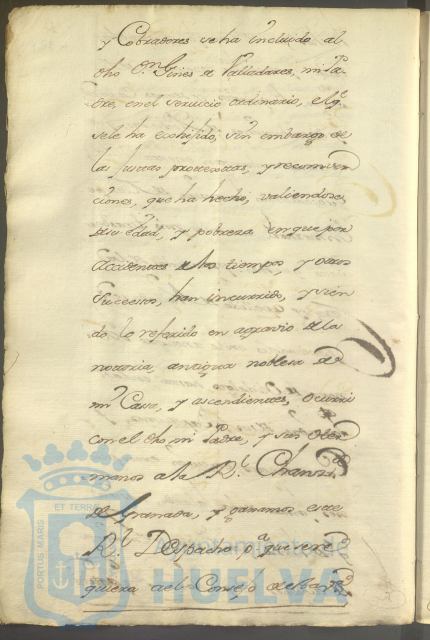 y Cobradores se ha incluido al
dho Dn Gines de Valladares, mi Pa-
dre, en el servicio ordinario, el q.e
se le ha echifido, sin embargo de
las justas protestas, y reconven
ciones, que ha hecho, valiendose
de su edad, y pobreza en que por
accidentes de los tiempos, y otros
Sucesos, han incurrido, y sien
do lo referido en agravio de la
notoria, antigua nobleza de
mi Casa, y ascendientes, ocurri
con el dho mi Padre, y sus Her
manos a la R.l Chanz.a
de Granada, y ganamos este
R.l Despacho p.a que se re
quiera a el Consejo de
PORTUS MARIS
ET TERRAE
Ayuntamiento de
HUELVA